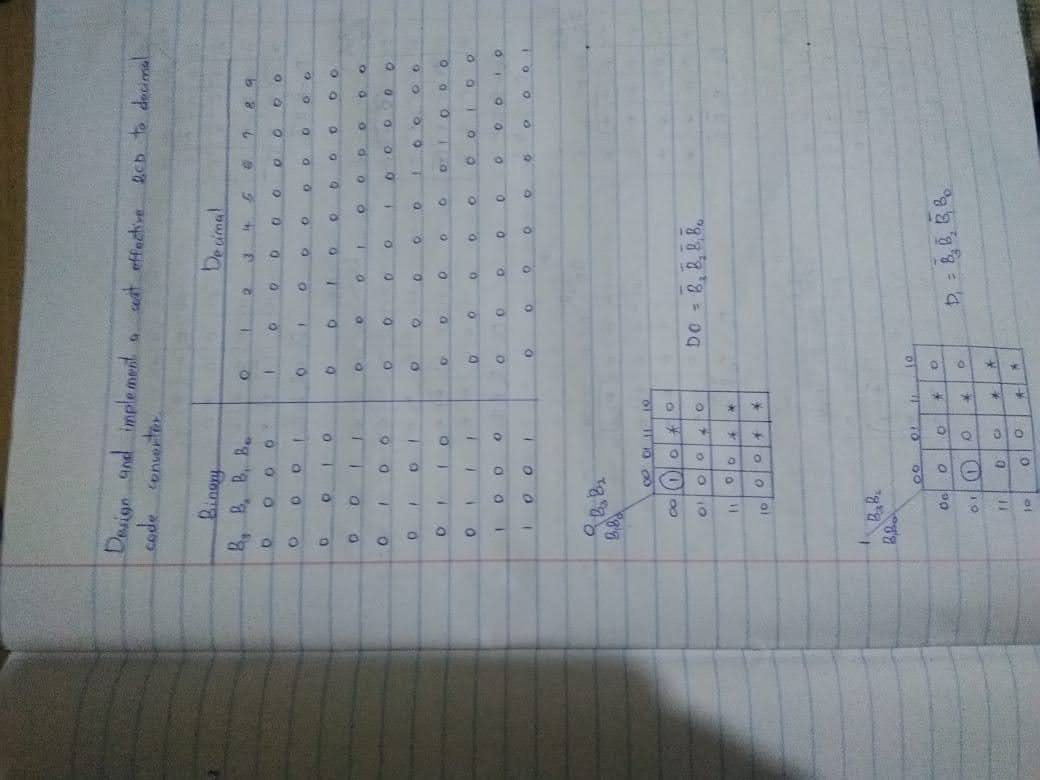 Design and implement a cost effective BCD to decimal
code converter.
Binary Decimal
B₃ B₂ B₁ B₀ 0 1 2 3 4 5 6 7 8 9
0 0 0 0 1 0 0 0 0 0 0 0 0 0
0 0 0 1 0 1 0 0 0 0 0 0 0 0
0 0 1 0 0 0 1 0 0 0 0 0 0 0
0 0 1 1 0 0 0 1 0 0 0 0 0 0
0 1 0 0 0 0 0 0 1 0 0 0 0 0
0 1 0 1 0 0 0 0 0 1 0 0 0 0
0 1 1 0 0 0 0 0 0 0 1 0 0 0
0 1 1 1 0 0 0 0 0 0 0 1 0 0
1 0 0 0 0 0 0 0 0 0 0 0 1 0
1 0 0 1 0 0 0 0 0 0 0 0 0 1
0 B₃B₂
B₁B₀ 00 01 11 10
00 1 0 * 0
01 0 0 * 0
11 0 0 * *
10 0 0 * *
D0 = B̄₃ B̄₂ B̄₁ B̄₀
1 B₃B₂
B₁B₀ 00 01 11 10
00 0 0 * 0
01 1 0 * 0
11 0 0 * *
10 0 0 * *
D₁ = B̄₃ B̄₂ B̄₁ B₀